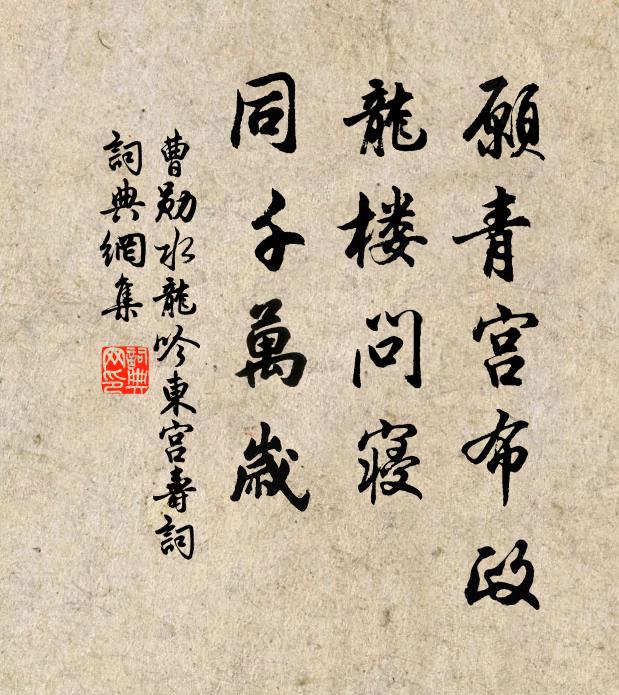 願青宫布政
龍楼問寝
同千萬歲
曹勛水龍吟東宫壽詞
詞典網集
詞典网印